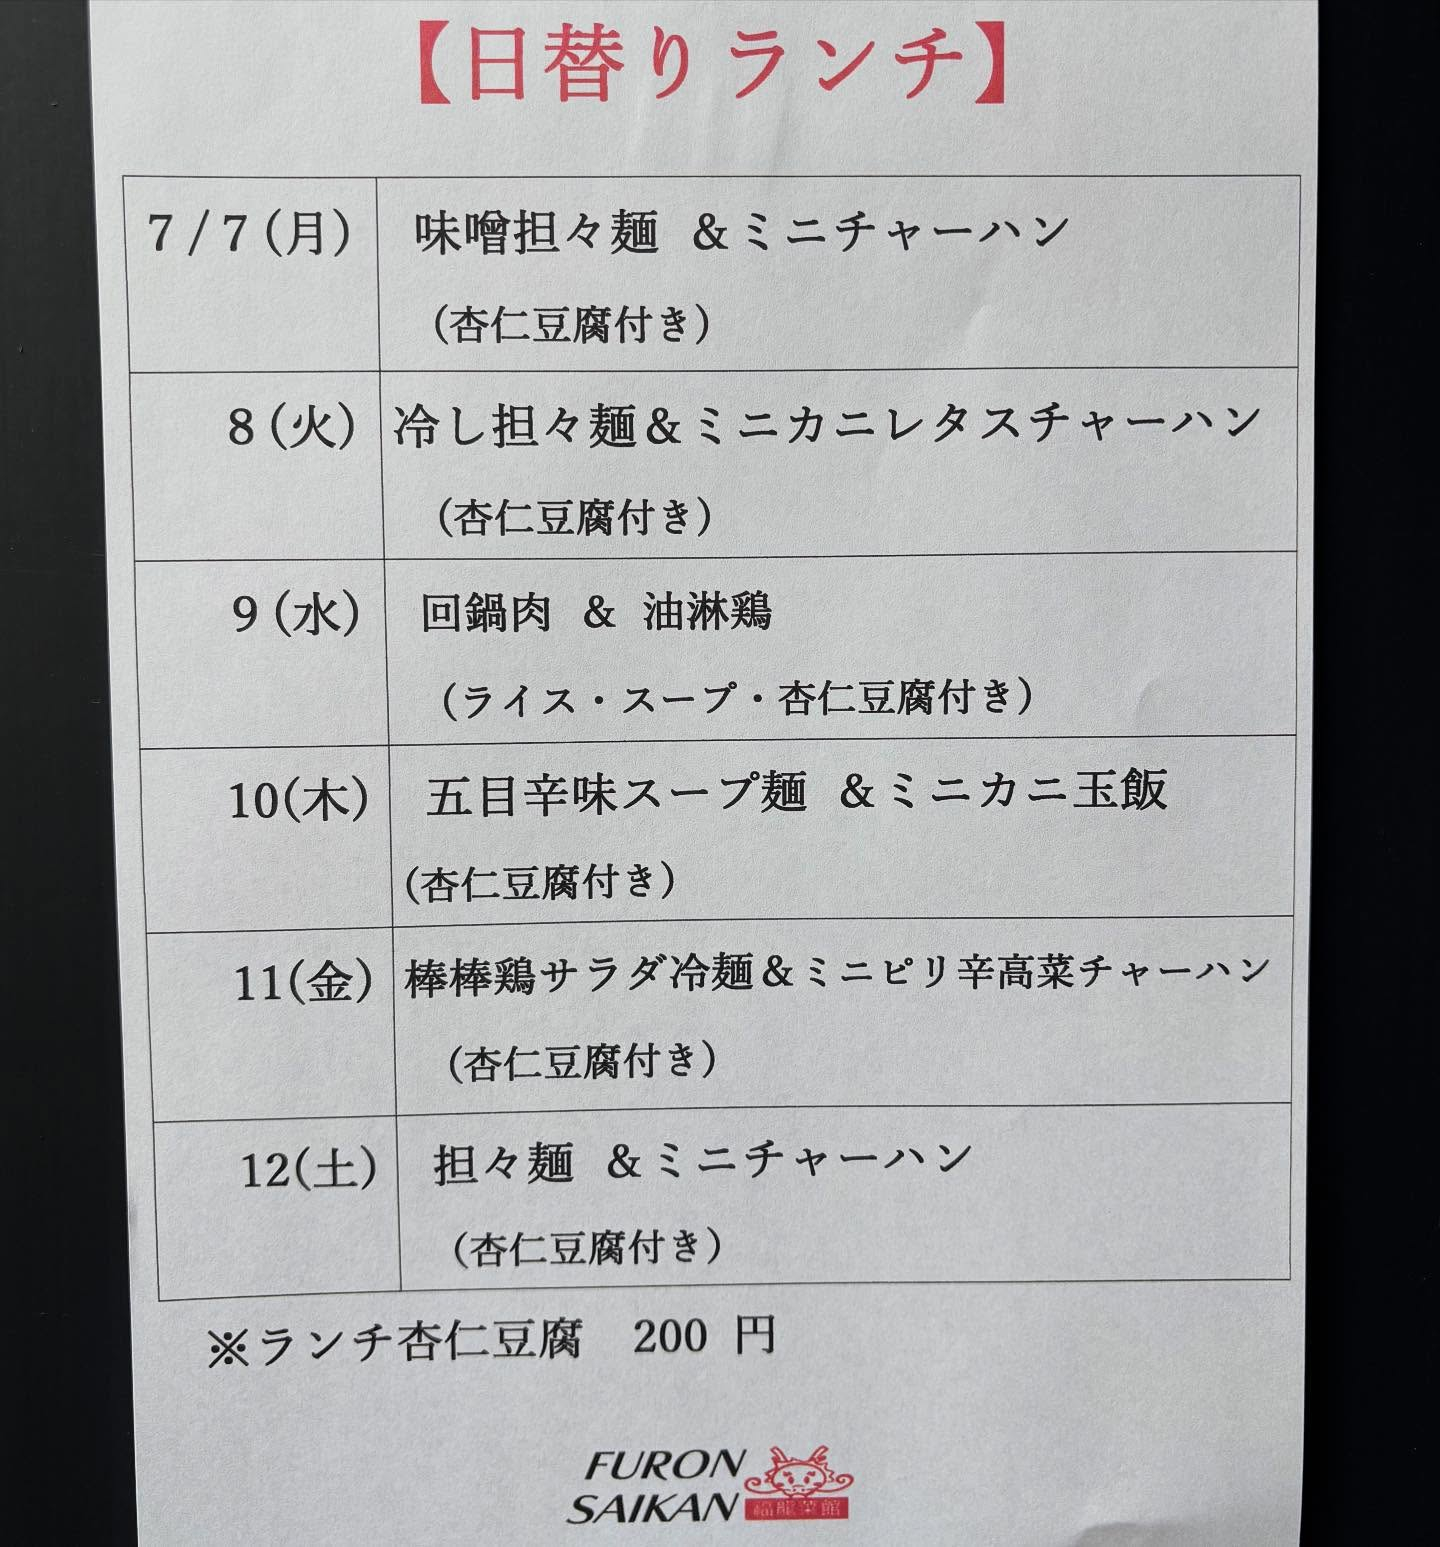 【日替りランチ】
7/7(月) 味噌担々麺 &ミニチャーハン
(杏仁豆腐付き)
8(火) 冷し担々麺&ミニカニレタスチャーハン
(杏仁豆腐付き)
9(水) 回鍋肉 & 油淋鶏
(ライス・スープ・杏仁豆腐付き)
10(木) 五目辛味スープ麺 &ミニカニ玉飯
(杏仁豆腐付き)
11(金) 棒棒鶏サラダ冷麺&ミニピリ辛高菜チャーハン
(杏仁豆腐付き)
12(土) 担々麺 &ミニチャーハン
(杏仁豆腐付き)
※ランチ杏仁豆腐 200 円
FURON
SAIKAN 福龍菜館